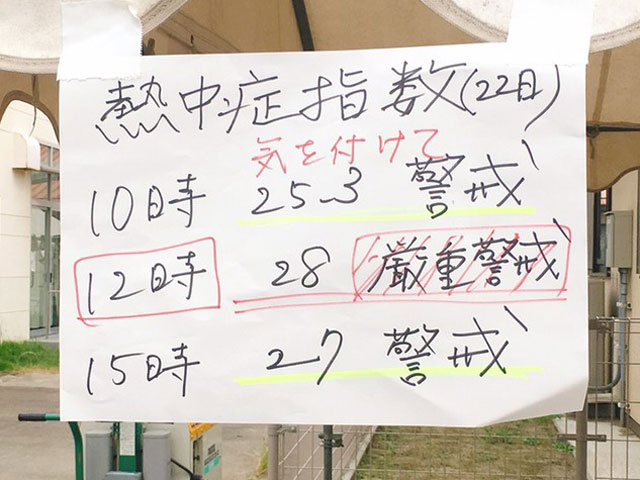 熱中症指数(22日)
気を付けて
10時 25.3 警戒
12時 28 厳重警戒
15時 27 警戒